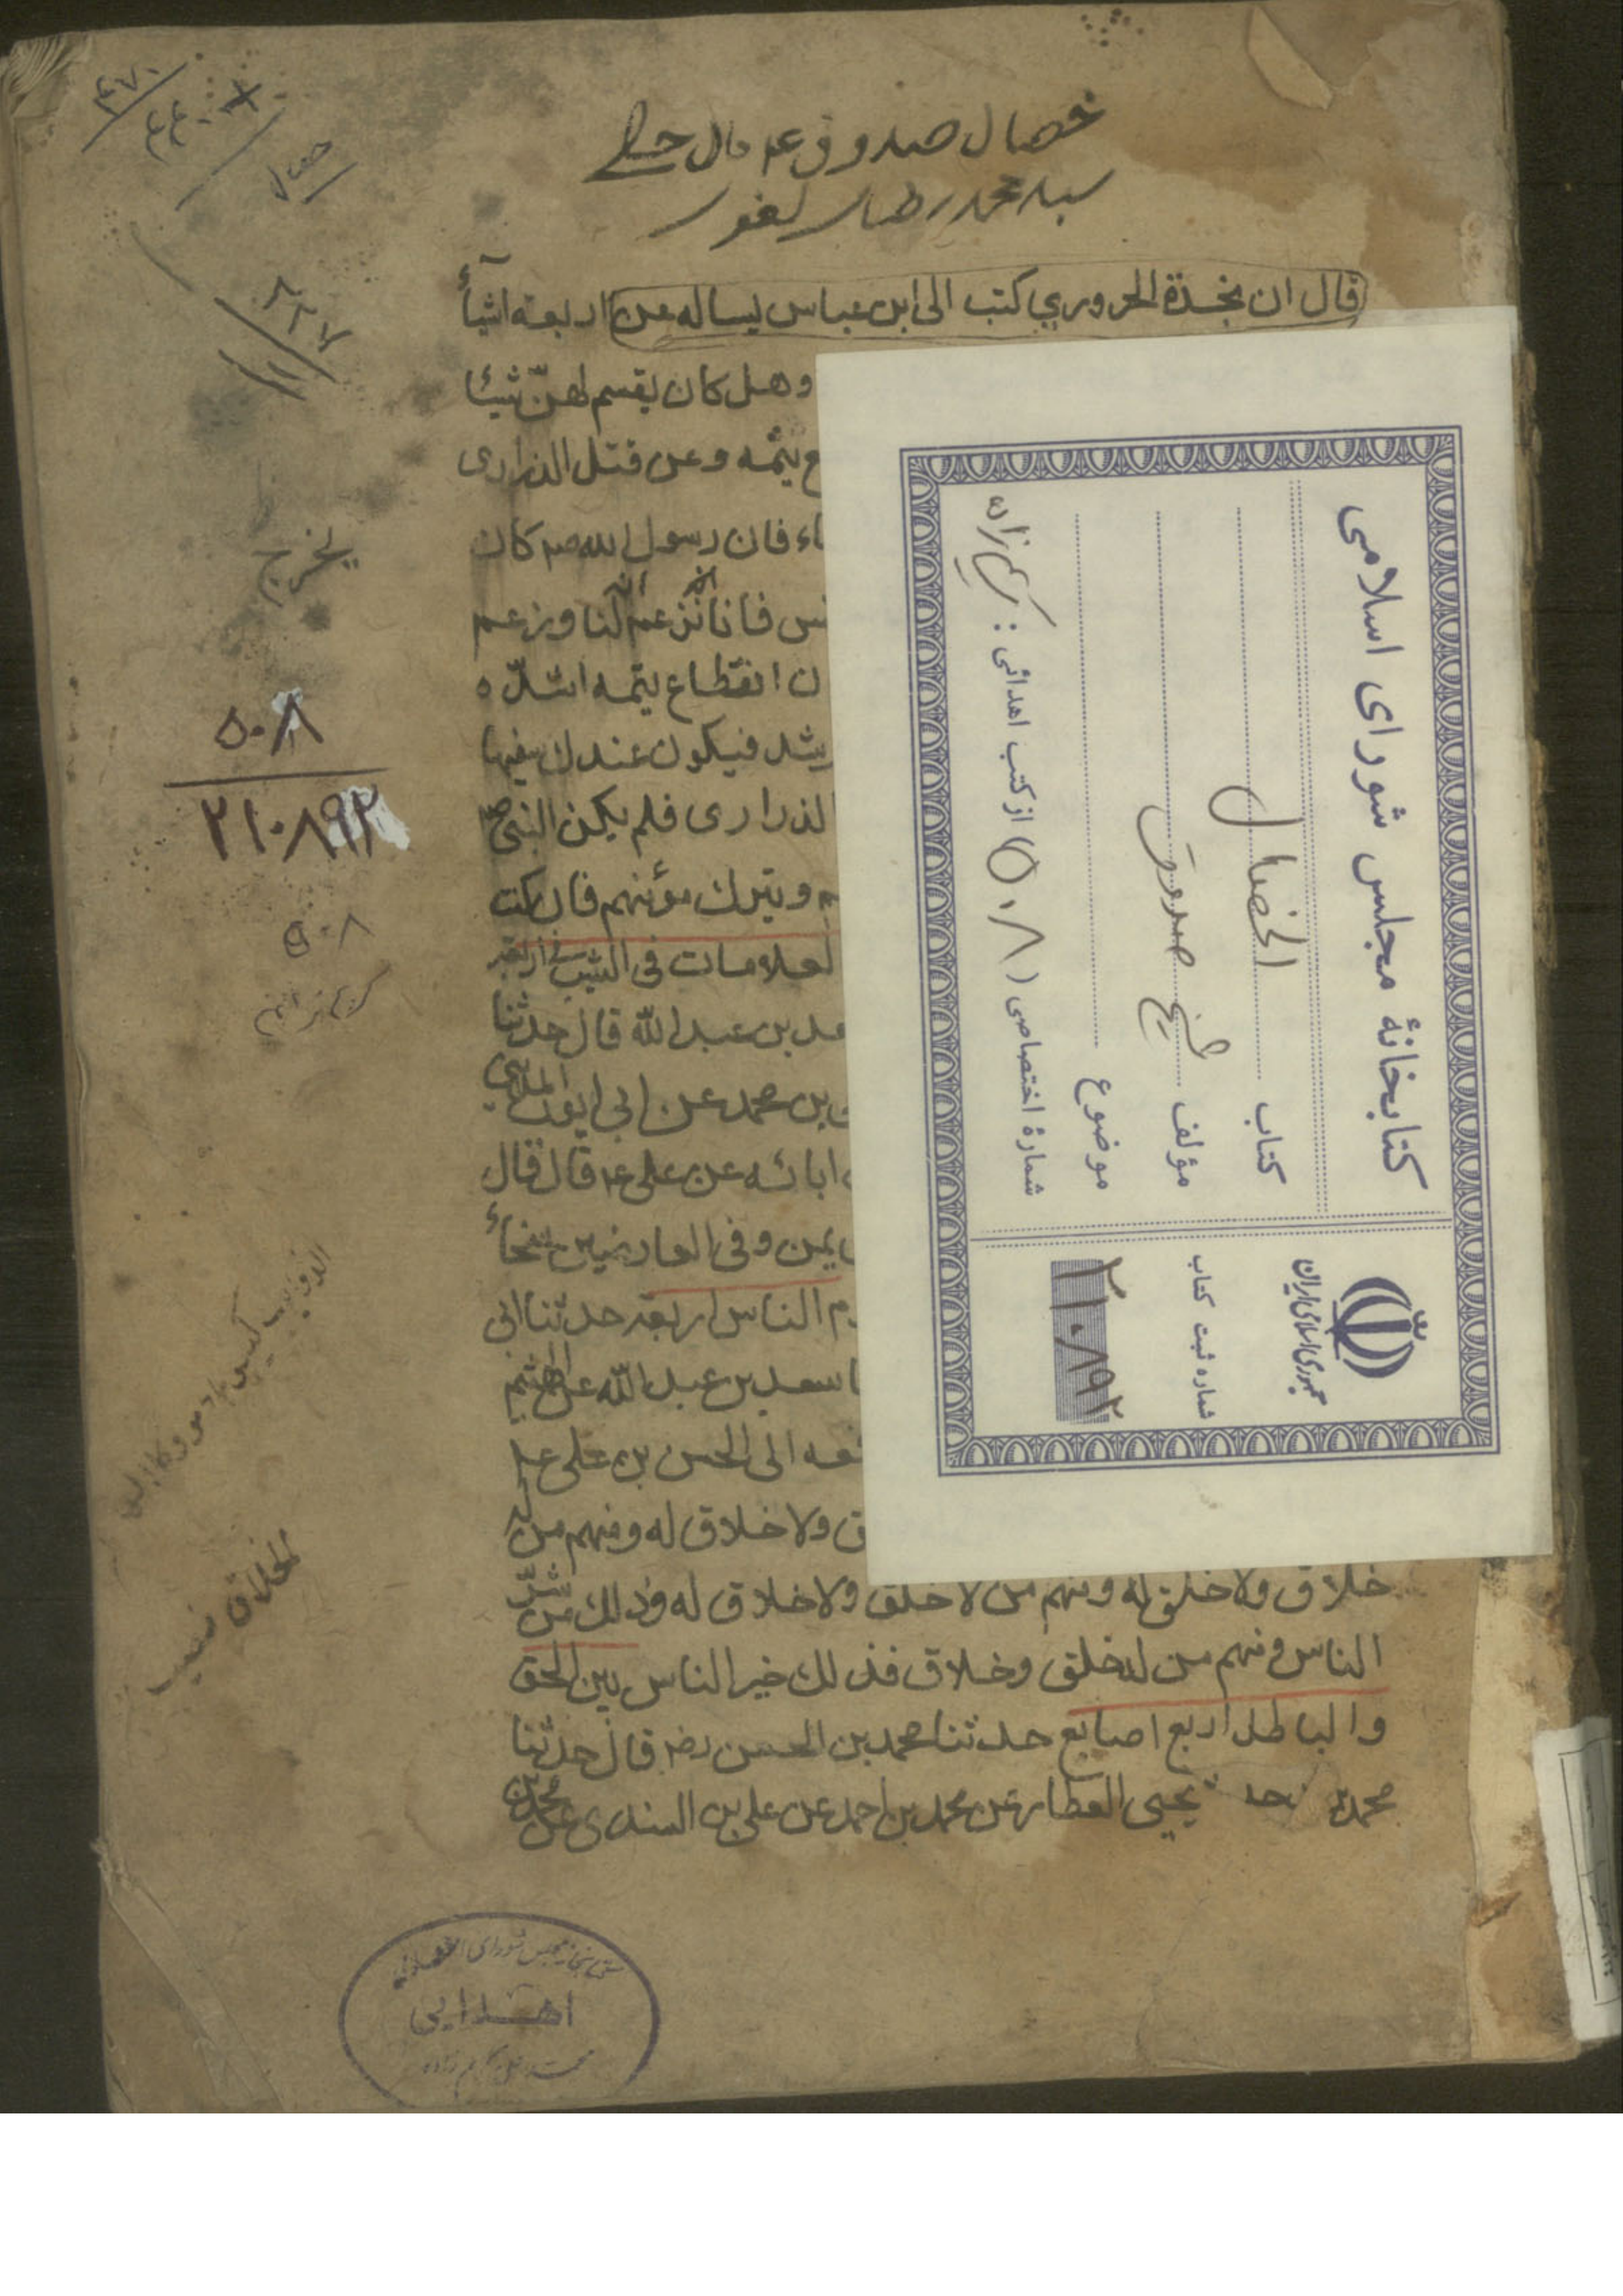 خصال صدوق ع مال
سید محمد رضا
قال ان نجدة الحروري كتب الى ابن عباس يساله عن اربعة اشياء
وهل كان يقسم لهن شيئا
يتمه وعن قتل الذرارى
فان رسول الله صم كان
فانا نزعم انه لنا وزعم
ان انقطاع يتمه اشده
فيكون عندك سفيها
الذرارى فلم يكن النبى ص
ويترك مؤمنهم فان كنت
العلامات فى الشيب اربعة
بن عبد الله قال حدثنا
بن محمد عن ابى ايوب المدينى
ابائه عن على ع قال قال
يمن وفى العارضين سخاء
الناس اربعة حدثنا ابى
سعد بن عبد الله عن الهيثم
الى الحسن بن على ع
ولا خلاق له ومنهم من له
خلاق ولا خلق له ومنهم من لا خلق ولا خلاق له وذلك من شر
الناس ومنهم من له خلق وخلاق فذلك خير الناس بين الحق
والباطل اربع اصابع حدثنا محمد بن الحسن رضه قال حدثنا
محمد بن يحيى العطار عن محمد بن احمد عن على بن السندى عن محمد بن
۴۷۰
۸۲۷
۱۱
يخرج
۵۰۸
۲۱۰۸۹۲
۵۰۸
کریم زاده
کتابخانهٔ مجلس شورای اسلامی
کتاب الخصال
مؤلف شیخ صدوق
موضوع
شمارهٔ اختصاصی ( ۵۰۸ ) از کتب اهدائی : کریم زاده
جمهوری اسلامی ایران
شماره ثبت کتاب
۲۱۰۸۹۲
کتابخانه مجلس شورای
اهدایی